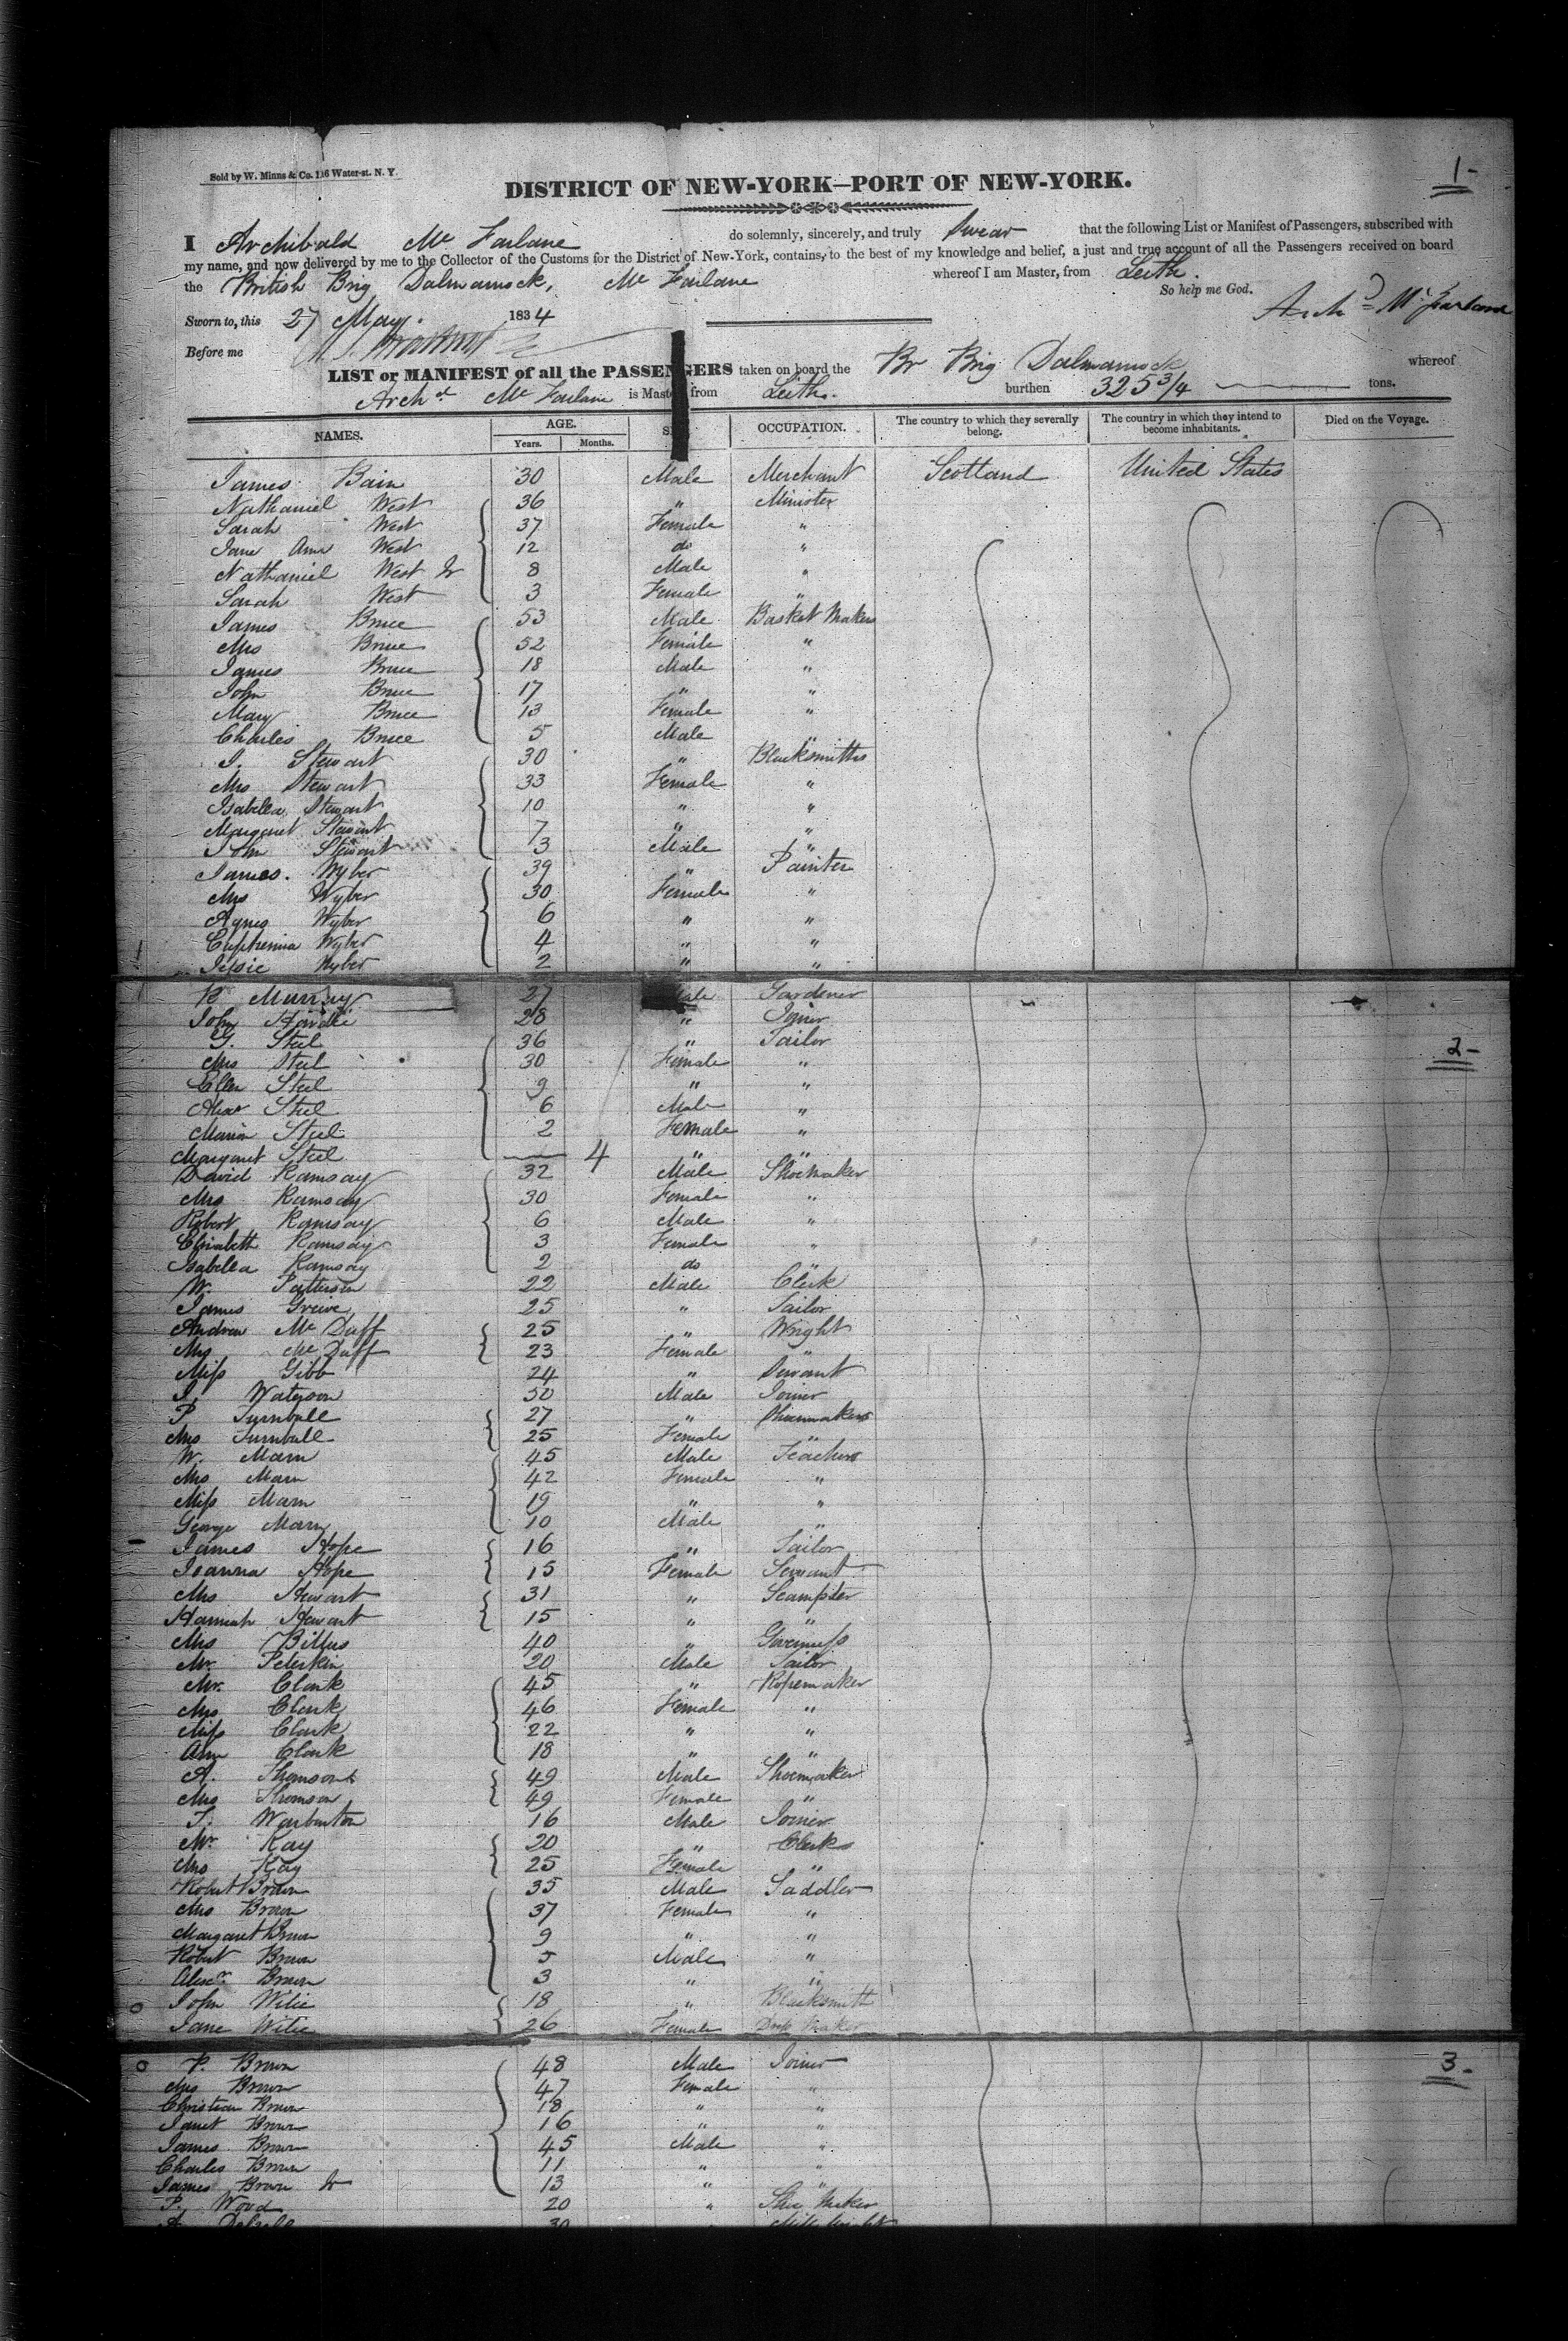 Sold by W. Minns & Co. 116 Water-st. N. Y.
1-
DISTRICT OF NEW-YORK—PORT OF NEW-YORK.
I Archibald Mc Farlane do solemnly, sincerely, and truly Swear that the following List or Manifest of Passengers, subscribed with
my name, and now delivered by me to the Collector of the Customs for the District of New-York, contains, to the best of my knowledge and belief, a just and true account of all the Passengers received on board
the British Brig Dalmarnock, Mc Farlane whereof I am Master, from Leith.
So help me God.
Archd Mc Farlane
Sworn to, this 27 May. 1834
Before me
LIST or MANIFEST of all the PASSENGERS taken on board the Br Brig Dalmarnock whereof
Archd Mc Farlane is Master from Leith. burthen 325 3/4 tons.
NAMES. AGE. OCCUPATION. The country to which they severally belong. The country in which they intend to become inhabitants. Died on the Voyage.
Years. Months.
James Bain 30 Male Merchant Scotland United States
Nathaniel West 36 " Minister
Sarah West 37 Female "
Jane Ann West 12 do "
Nathaniel West Jr 8 Male "
Sarah West 3 Female "
James Bruce 53 Male Basket Makers
Mrs Bruce 52 Female "
James Bruce 18 Male "
John Bruce 17 " "
Mary Bruce 13 Female "
Charles Bruce 5 Male "
J. Stewart 30 " Blacksmiths
Mrs Stewart 33 Female "
Isabella Stewart 10 " "
Margaret Stewart 7 " "
John Stewart 3 Male "
James. Wyber 39 " Painter
Mrs Wyber 30 Female "
Agnes Wyber 6 " "
Euphemia Wyber 4 " "
Jessie Wyber 2 " "
R Murray 27 Male Gardener
John Hardie 28 " Joiner
2-
G. Steel 36 " Tailor
Mrs Steel 30 Female "
Ellen Steel 9 " "
Alexr Steel 6 Male "
Marion Steel 2 Female "
Margaret Steel — 4 " "
David Ramsay 32 Male Shoemaker
Mrs Ramsay 30 Female "
Robert Ramsay 6 Male "
Elizabeth Ramsay 3 Female "
Isabella Ramsay 2 do "
W. Patterson 22 Male Clerk
James Greive 25 " Tailor
Andrew Mc Duff 25 " Wright
Mrs Mc Duff 23 Female "
Miss Gibb 24 " Servant
J Waterson 50 Male Joiner
P Turnbull 27 " Shoemakers
Mrs Turnbull 25 Female "
W. Marn 45 Male Teachers
Mrs Marn 42 Female "
Miss Marn 19 " "
George Marn 10 Male "
James Hope 16 " Tailor
Joanna Hope 15 Female Servant
Mrs Stewart 31 " Seampster
Hannah Stewart 15 " "
Mrs 40 " Governess
Mr Peterkin 20 Male Tailor
Mr. Clark 45 " Ropemaker
Mrs Clark 46 Female "
Miss Clark 22 " "
Ann Clark 18 " "
A. Thomson 49 Male Shoemaker
Mrs Thomson 49 Female "
T. Warburton 16 Male Joiner
Mr. Kay 20 " Clerks
Mrs Kay 25 Female "
Robert Brown 35 Male Saddler
Mrs Brown 37 Female "
Margaret Brown 9 " "
Robert Brown 5 Male "
Alexr. Brown 3 " "
John Wilie 18 " Blacksmith
Jane Wilie 26 Female Dress Maker
3-
P. Brown 48 Male Joiner
Mrs Brown 47 Female "
Christian Brown 18 " "
Janet Brown 16 " "
James Brown 45 Male "
Charles Brown 11 " "
James Brown Jr 13 " "
P. Wood 20 " Shoe Maker
A Dalzell 30 Mill Wright